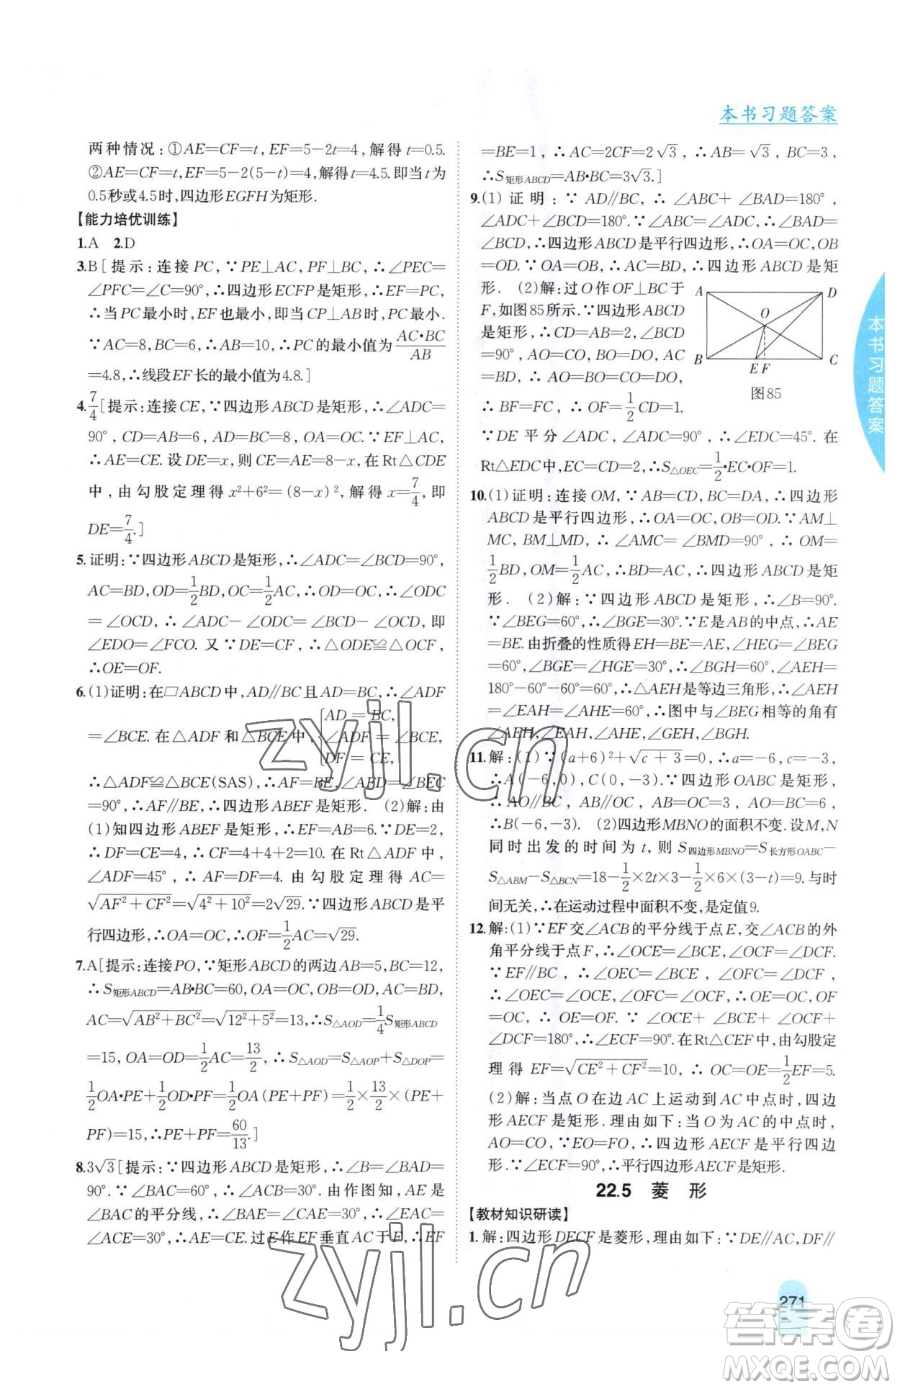 本书习题答案
两种情况:①AE=CF=t,EF=5-2t=4,解得t=0.5.
②AE=CF=t,EF=5-2(5-t)=4,解得t=4.5.即当t为
0.5秒或4.5时,四边形EGFH为矩形.
【能力培优训练】
1.A 2.D
3.B[提示:连接PC,∵PE⊥AC,PF⊥BC,∴∠PEC=
∠PFC=∠C=90°,∴四边形ECFP是矩形,∴EF=PC,
∴当PC最小时,EF也最小,即当CP⊥AB时,PC最小.
∵AC=8,BC=6,∴AB=10,∴PC的最小值为AC•BC/AB
=4.8,∴线段EF长的最小值为4.8.]
4.7/4[提示:连接CE,∵四边形ABCD是矩形,∴∠ADC=
90°,CD=AB=6,AD=BC=8,OA=OC,∵EF⊥AC,
∴AE=CE.设DE=x,则CE=AE=8-x,在Rt△CDE
中,由勾股定理得x²+6²=(8-x)²,解得x=7/4,即
DE=7/4.]
5.证明:∵四边形ABCD是矩形,∴∠ADC=∠BCD=90°,
AC=BD,OD=1/2BD,OC=1/2AC,∴OD=OC,∴∠ODC
=∠OCD,∴∠ADC-∠ODC=∠BCD-∠OCD,即
∠EDO=∠FCO.又∵DE=CF,∴△ODE≌△OCF,
∴OE=OF.
6.(1)证明:在□ABCD中,AD∥BC且AD=BC,∴∠ADF
=∠BCE.在△ADF和△BCE中,{AD=BC,
∠ADF=∠BCE,
DF=CE,
∴△ADF≌△BCE(SAS),∴AF=BE,∠AFD=∠BEC
=90°,∴AF∥BE,∴四边形ABEF是矩形. (2)解:由
(1)知四边形ABEF是矩形,∴EF=AB=6.∵DE=2,
∴DF=CE=4,∴CF=4+4+2=10.在Rt△ADF中,
∠ADF=45°,∴AF=DF=4.由勾股定理得AC=
√(AF²+CF²)=√(4²+10²)=2√29.∵四边形ABCD是平
行四边形,∴OA=OC,∴OF=1/2AC=√29.
7.A[提示:连接PO,∵矩形ABCD的两边AB=5,BC=12,
∴S矩形ABCD=AB•BC=60,OA=OC,OB=OD,AC=BD,
AC=√(AB²+BC²)=√(12²+5²)=13,∴S△AOD=1/4S矩形ABCD
=15,OA=OD=1/2AC=13/2,∴S△AOD=S△AOP+S△DOP=
1/2OA•PE+1/2OD•PF=1/2OA(PE+PF)=1/2×13/2×(PE+
PF)=15,∴PE+PF=60/13.]
8.3√3[提示:∵四边形ABCD是矩形,∴∠B=∠BAD=
90°.∵∠BCA=30°,∴∠BAC=60°.由作图知,AE是
∠BAC的平分线,∴∠BAE=∠CAE=30°,∴∠EAC=
∠ACE=30°,∴AE=CE.过E作EF垂直AC于F,∴EF
=BE=1,∴AC=2CF=2√3,∴AB=√3,BC=3,
∴S矩形ABCD=AB•BC=3√3.]
9.(1)证明:∵AD∥BC,∴∠ABC+∠BAD=180°,
∠ADC+∠BCD=180°.∵∠ABC=∠ADC,∴∠BAD=
∠BCD,∴四边形ABCD是平行四边形,∴OA=OC,OB
=OD.∵OA=OB,∴AC=BD,∴四边形ABCD是矩
形. (2)解:过O作OF⊥BC于
F,如图85所示.∵四边形ABCD
是矩形,∴CD=AB=2,∠BCD=
90°,AO=CO,BO=DO,AC=
BD,∴AO=BO=CO=DO,∴BF
=CF,∴OF=1/2CD=1.
A D O B E F C
图85
∵DE平分∠ADC,∠ADC=90°,∴∠EDC=45°.在
Rt△EDC中,EC=CD=2,∴S△OEC=1/2•EC•OF=1.
10.(1)证明:连接OM,∵AB=CD,BC=DA,∴四边形
ABCD是平行四边形,∴OA=OC,OB=OD.∵AM⊥
MC,BM⊥MD,∴∠AMC=∠BMD=90°,∴OM=
1/2BD,OM=1/2AC,∴AC=BD,∴四边形ABCD是矩
形. (2)解:∵四边形ABCD是矩形,∴∠B=90°,
∴∠BEG=60°,∴∠BGE=30°.∵E是AB的中点,∴AE
=BE.由折叠的性质得EH=BE=AE,∠HEG=∠BEG
=60°,∠HGE=∠BGE=30°,∴∠BGH=60°,∠AEH=
180°-60°-60°=60°,∴△AEH是等边三角形,∴∠AEH
=∠EAH=∠AHE=60°,∴图中与∠BEG相等的角有
∠AEH,∠EAH,∠AHE,∠GEH,∠BGH.
11.解:(1)∵(a+6)²+√(c+3)=0,∴a=-6,c=-3,
∴A(-6,0),C(0,-3).∵四边形OABC是矩形,
∴AO∥BC,AB∥OC,AB=OC=3,AO=BC=6,
∴B(-6,-3). (2)四边形MBNO的面积不变.设M,N
同时出发的时间为t,则S四边形MBNO=S长方形OABC-
S△ABM-S△BCN=18-1/2×2t×3-1/2×6×(3-t)=9.与时
间无关,∴在运动过程中面积不变,是定值9.
12.解:(1)∵EF交∠ACB的平分线于点E,交∠ACB的外
角平分线于点F,∴∠OCE=∠BCE,∠OCF=∠DCF.
∵EF∥BC,∴∠OEC=∠BCE,∠OFC=∠DCF,
∴∠OEC=∠OCE,∠OFC=∠OCF,∴OE=OC,OF=
OC,∴OE=OF.∵∠OCE+∠BCE+∠OCF+
∠DCF=180°,∴∠ECF=90°.在Rt△CEF中,由勾股定
理得EF=√(CE²+CF²)=10,∴OC=OE=1/2EF=5.
(2)解:当点O在边AC上运动到AC中点时,四边形
AECF是矩形.理由如下:当O为AC的中点时,
AO=CO,∵EO=FO,∴四边形AECF是平行四边
形.∵∠ECF=90°,∴平行四边形AECF是矩形.
22.5 菱 形
【教材知识研读】
1.解:四边形DECF是菱形,理由如下:∵DE∥AC,DF∥
本书习题答案
271
zyjl.cn
zyjl.cn
答案圈
MXQE.COM